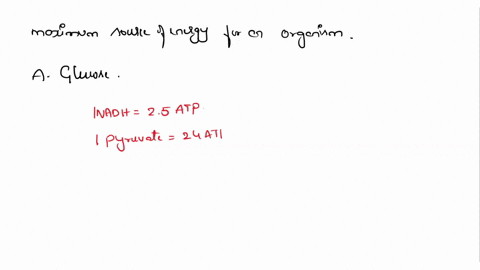 maximum source of energy for an organism.
A. Glucose.
1NADH = 2.5 ATP
1 Pyruvate = 24 ATI